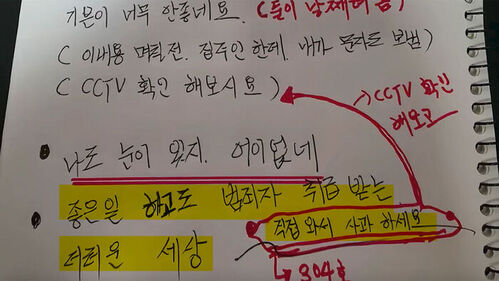 기분이 너무 안좋네요.
( 이내용 며칠전. 집주인 한테. 내가 문자도 보냄)
( CCTV 확인 해보시요 )
CCTV 확인
해보고
나도 눈이 있지. 어이없네
좋은일 하고도 범죄자 취급 받는
직접 와서 사과 하세요
더러운 세상
304호